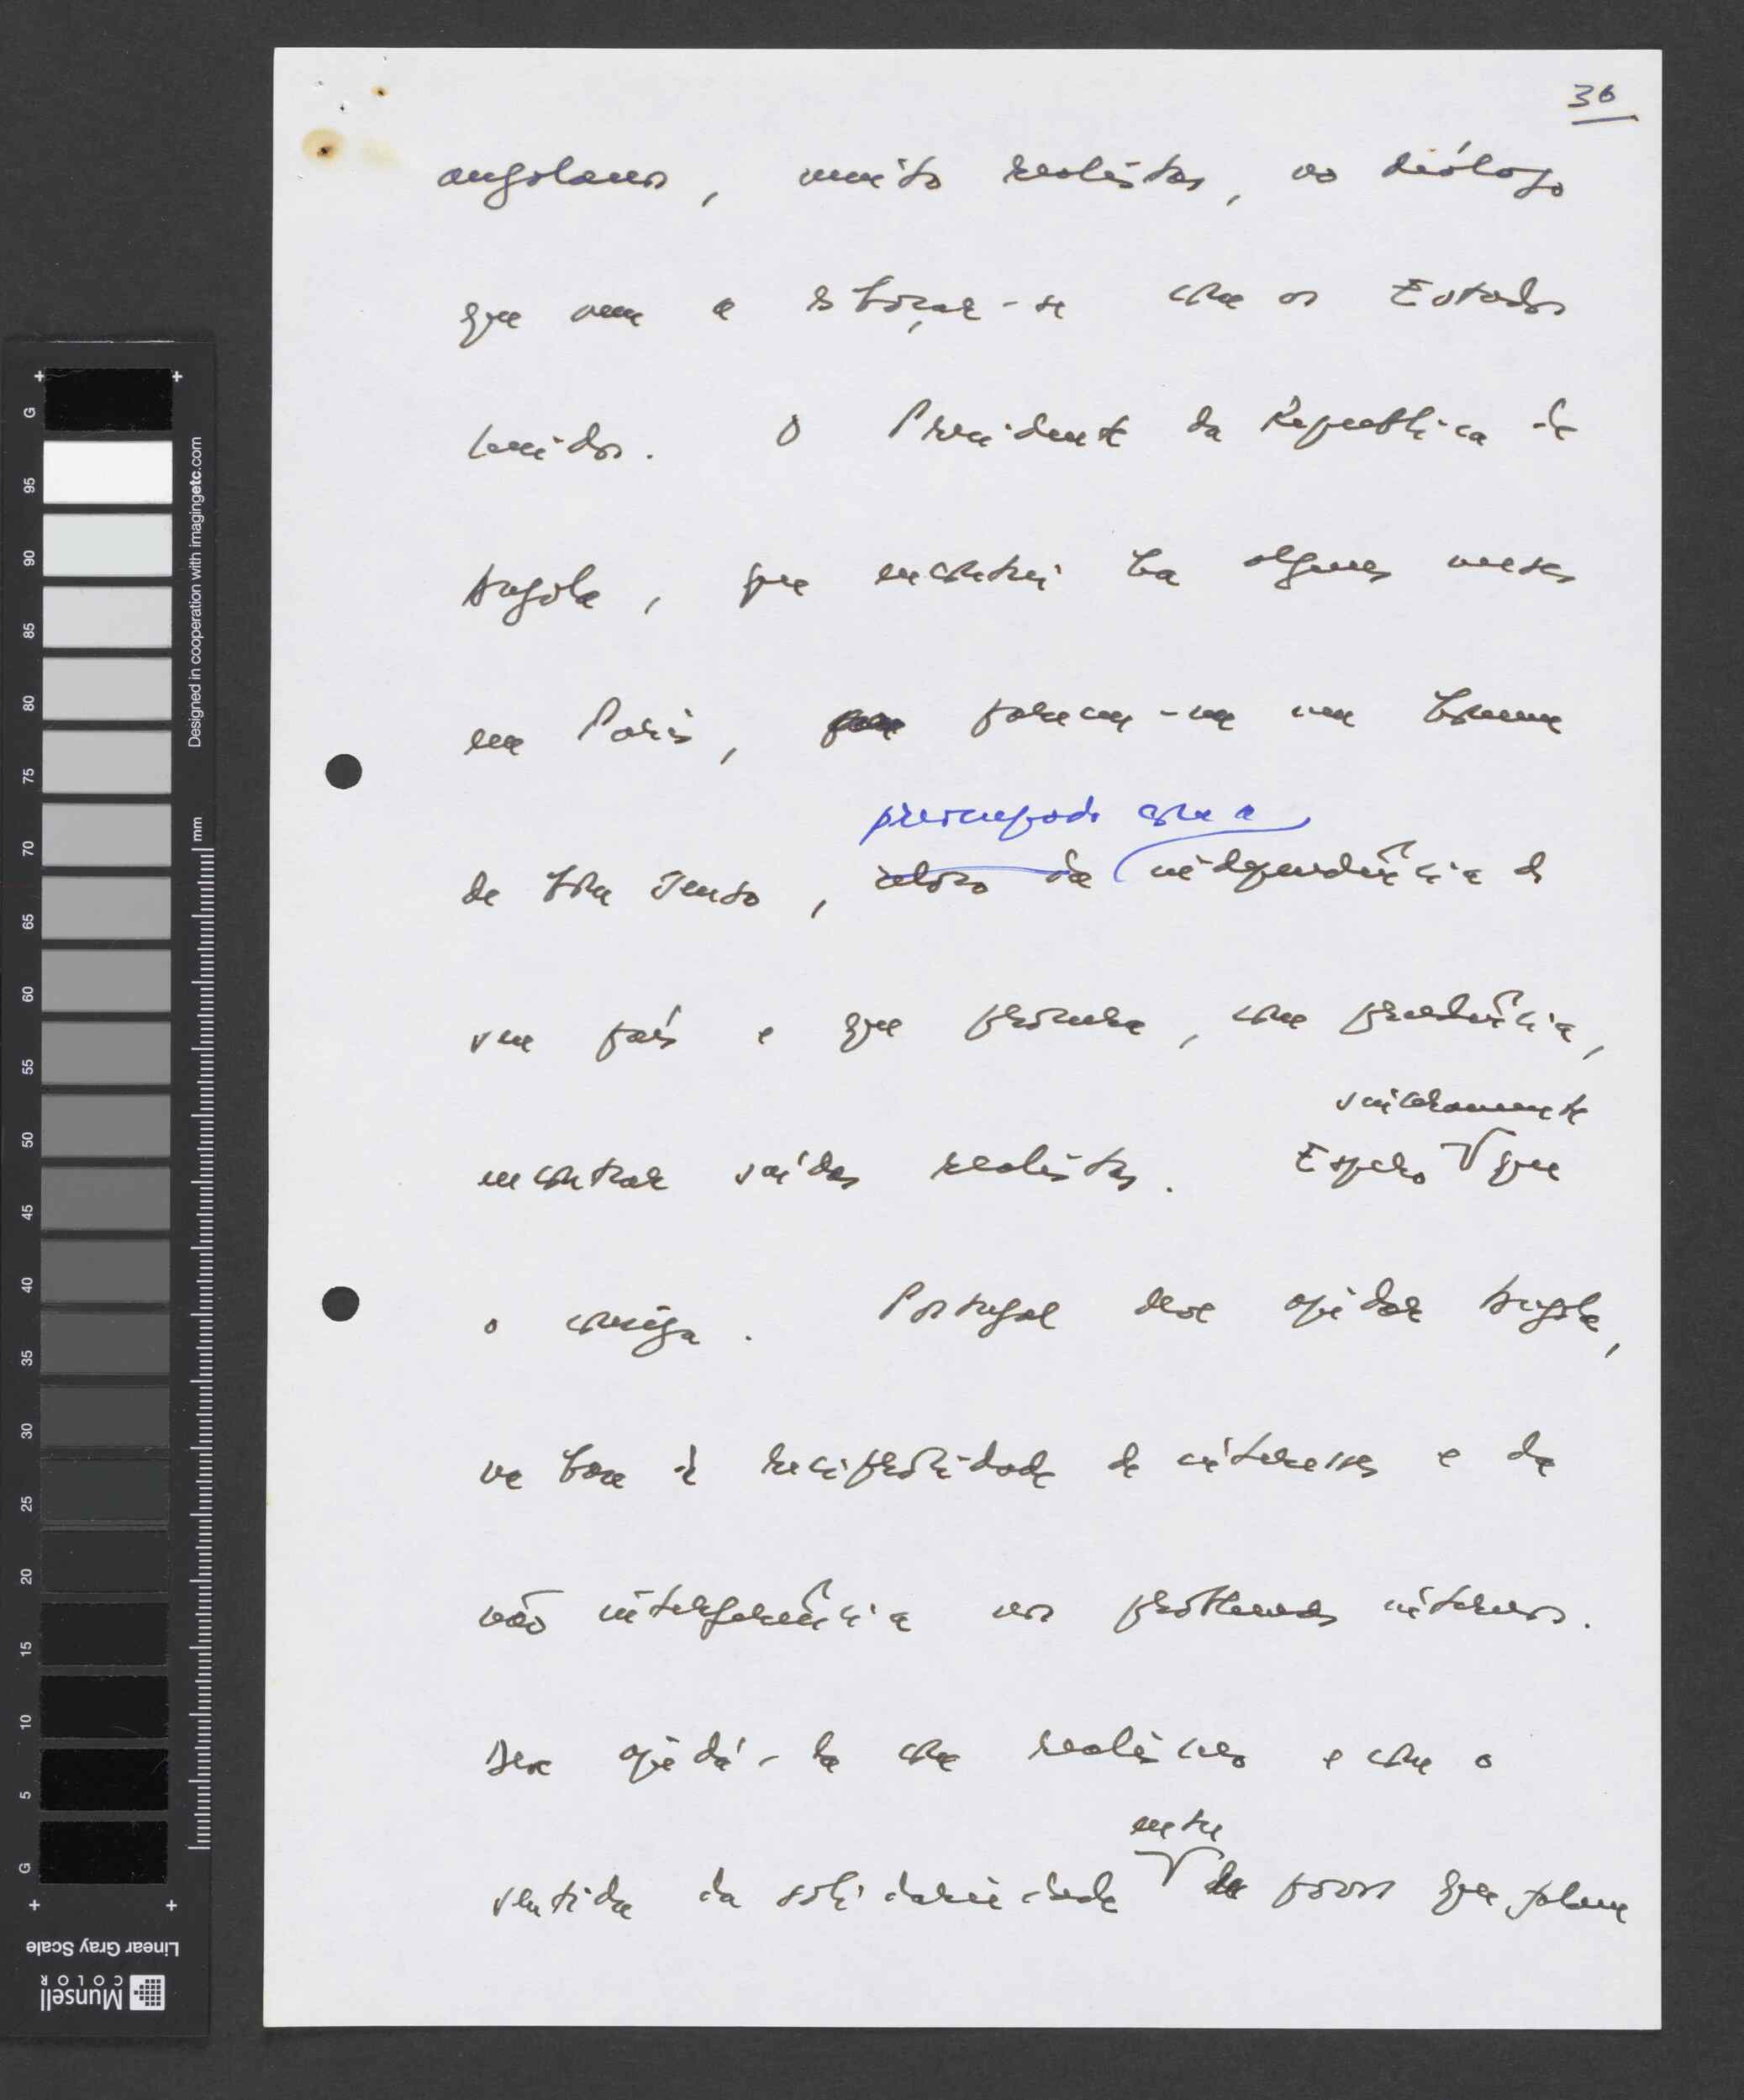 36
angolanos, muito realistas, no diálogo
que vem a esboçar-se com os Estados
Unidos. O Presidente da Republica de
Angola, que encontrei ha alguns meses
em Paris, pareceu-me um homem
preocupado com a
de bom senso, cioso da independência do
seu país e que procura, com prudência,
sinceramente
encontrar saídas realistas. Espero que
o consiga. Portugal deve ajudar Angola,
na base da reciprocidade de interesses e da
não interferência nos problemas internos.
Deve ajudá-la com realismo e com o
entre
sentido da solidariedade de povos que falam
G 95 90 85 80 75 70 65 60 55 50 45 40 35 30 25 20 15 10 5 G
Designed in cooperation with imagingetc.com
mm
Linear Gray Scale
Munsell
COLOR